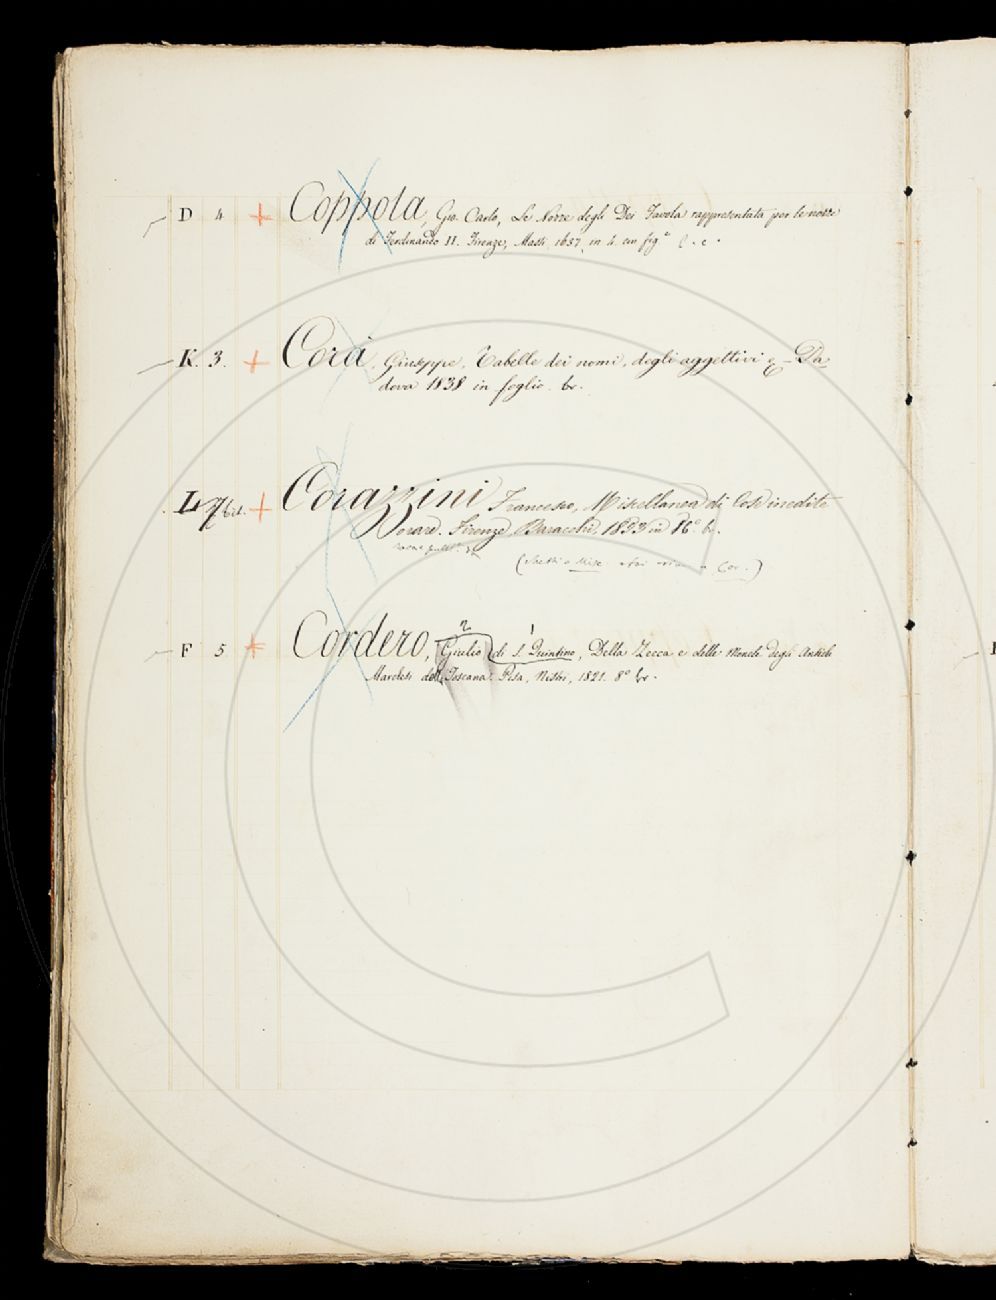 D 4 + Coppola, Gio. Carlo, Le Nozze degli Dei Favola rappresentata per le nozze
di Ferdinando II. Firenze, Massi, 1637, in 4. con fig.e l. c.
K. 3. + Corà, Giuseppe, Tabelle dei nomi, degli aggettivi & - Pa-
dova 1838 in foglio. br.
L 7 bis. + Corazzini, Francesco, Miscellanea di Cose inedite
o rare. Firenze, Baracchi, 1853 in 16.o br.
F 5 + Cordero, Giulio di S. Quintino, Della Zecca e delle Monete degli Antichi
2 1
Marchesi della Toscana. Pisa, Nistri, 1821. 8o br.